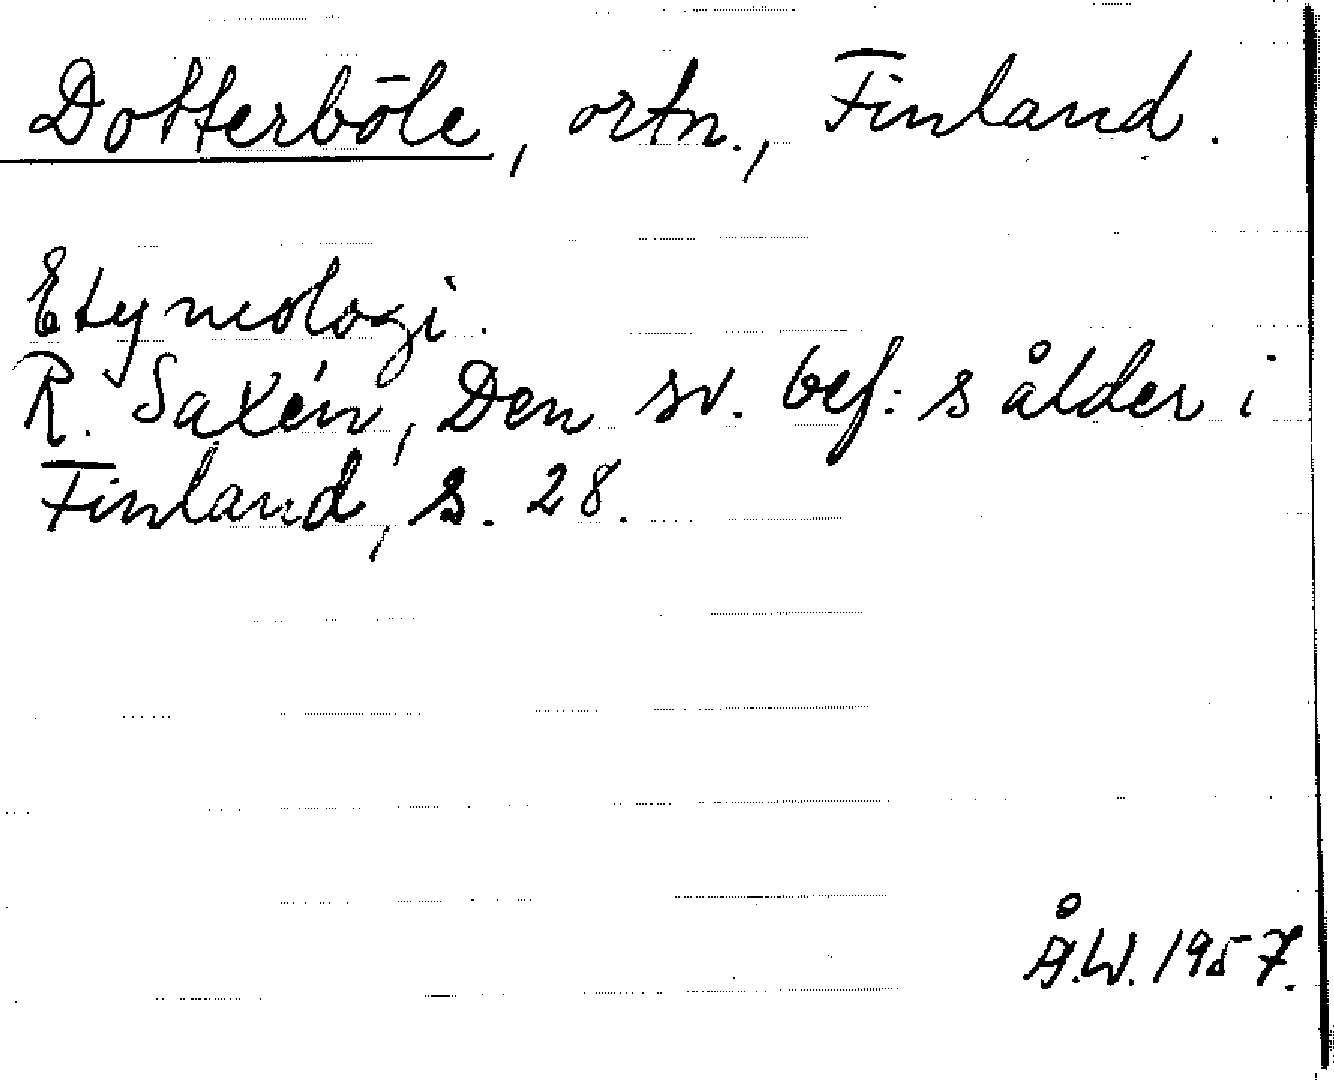 Dotterböle, ortn., Finland.
Etymologi.
R. Saxén, Den sv. bef:s ålder i
Finland, s. 28.
Å.W. 1957.